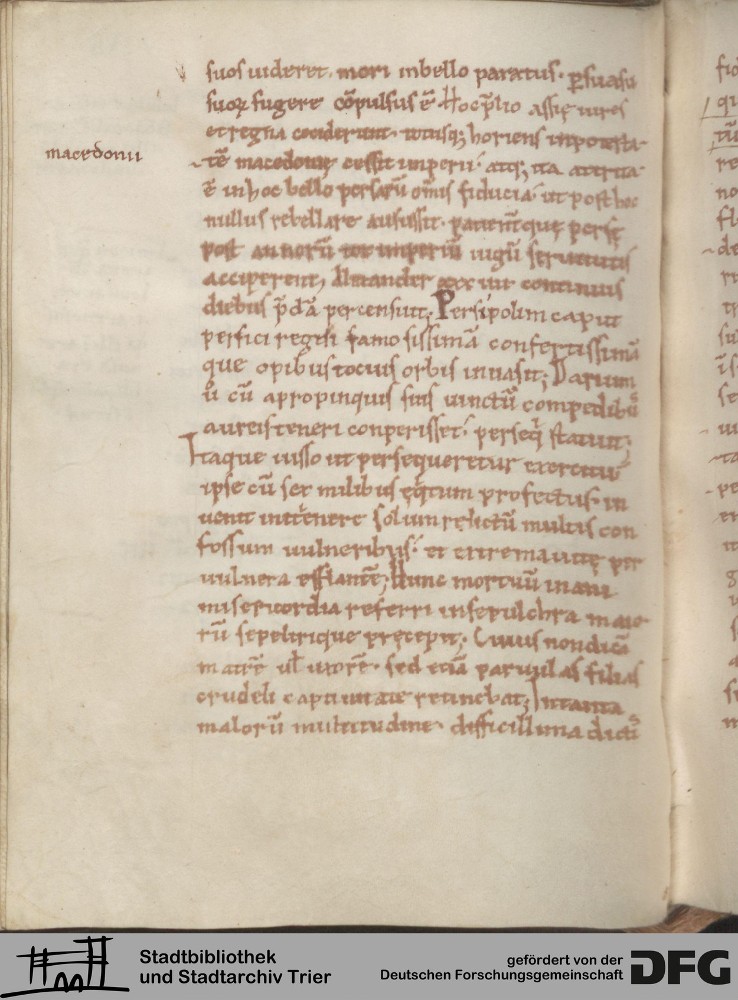 suos uideret. mori inbello paratus. psuasu
suoꝝ fugere cōpulsus ē. Hoc p̄lio assię uires
et regna ceciderunt. totusq; horiens inpotesta-
macedonii
tē macedonię cessit imperii. atq; ita attrita
ē inhoc bello persarū om̄is fiducia. ut post hoc
nullus rebellare ausus sit. patienterque persę
post annorū tot imperiū iugū seruitutis
acciperent; Alexander xxx iiii continuis
diebus p̄dā percensuit. Persipolim caput
persici regni famosissimā confertissimā
que opibus tocius orbis inuasit; Darium
ū cū a propinquis suis uinctū compedibꝰ
aureis teneri conperisset. perseq̄ statuit;
Itaque iusso ut persequeretur exercitu
ipse cū sex milibus eq̄tum profectus. in
uenit in itenere solum relictū multis con
fossum uulneribus. et extrema uitę per
uulnera efflantē; Hunc mortuū inani
misericordia referri in sepulchra maio
rū sepelirique pręcepit; Cuius non dicā
matrē ul̄ uxorē. sed etiā paruulas filias
crudeli captiuitate retinebat; In tanta
malorū multitudine. difficillima dictu
Stadtbibliothek
und Stadtarchiv Trier
gefördert von der
Deutschen Forschungsgemeinschaft
DFG